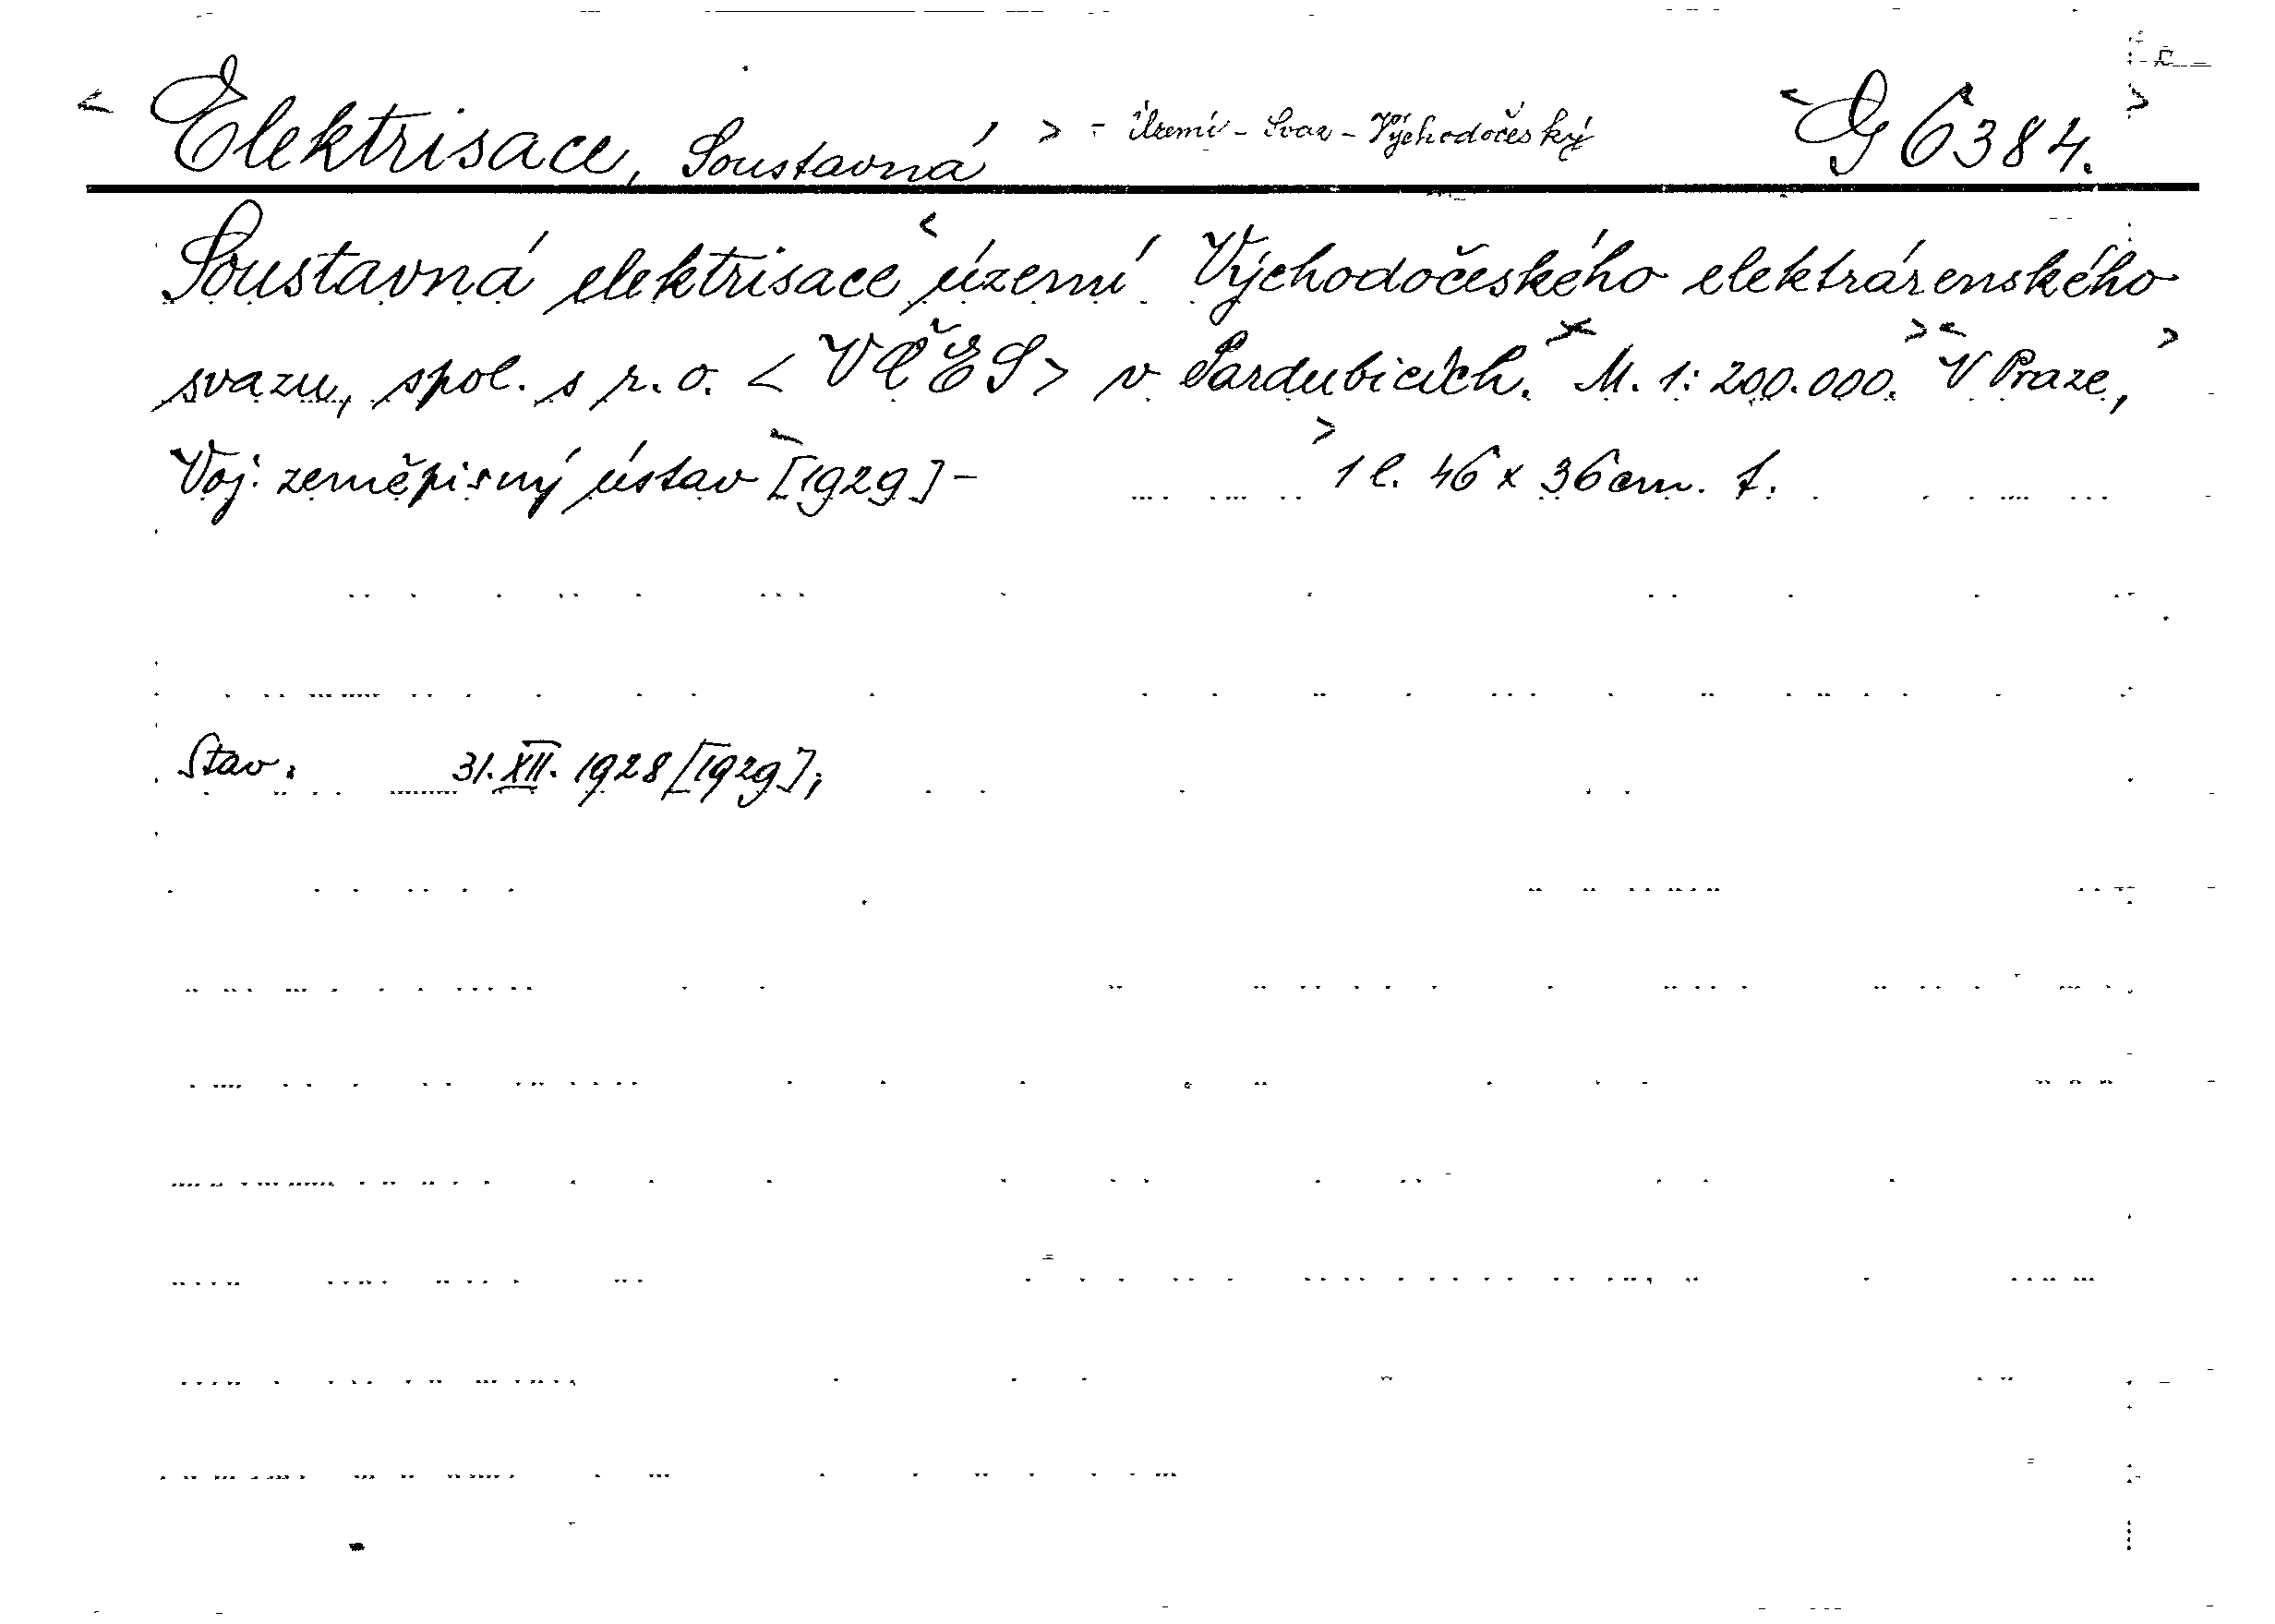 < Elektrisace, Soustavná > - Území - Svaz - Východočeský < G 6384. >
Soustavná elektrisace < území Východočeského elektrárenského
svazu, spol. s r. o. < VČES > v Pardubicích. >< M. 1: 200.000. >< V Praze, >
Voj. zeměpisný ústav < [1929] - > 1 l. 46 x 36 cm. f.
Stav: 31. XII. 1928 [1929];